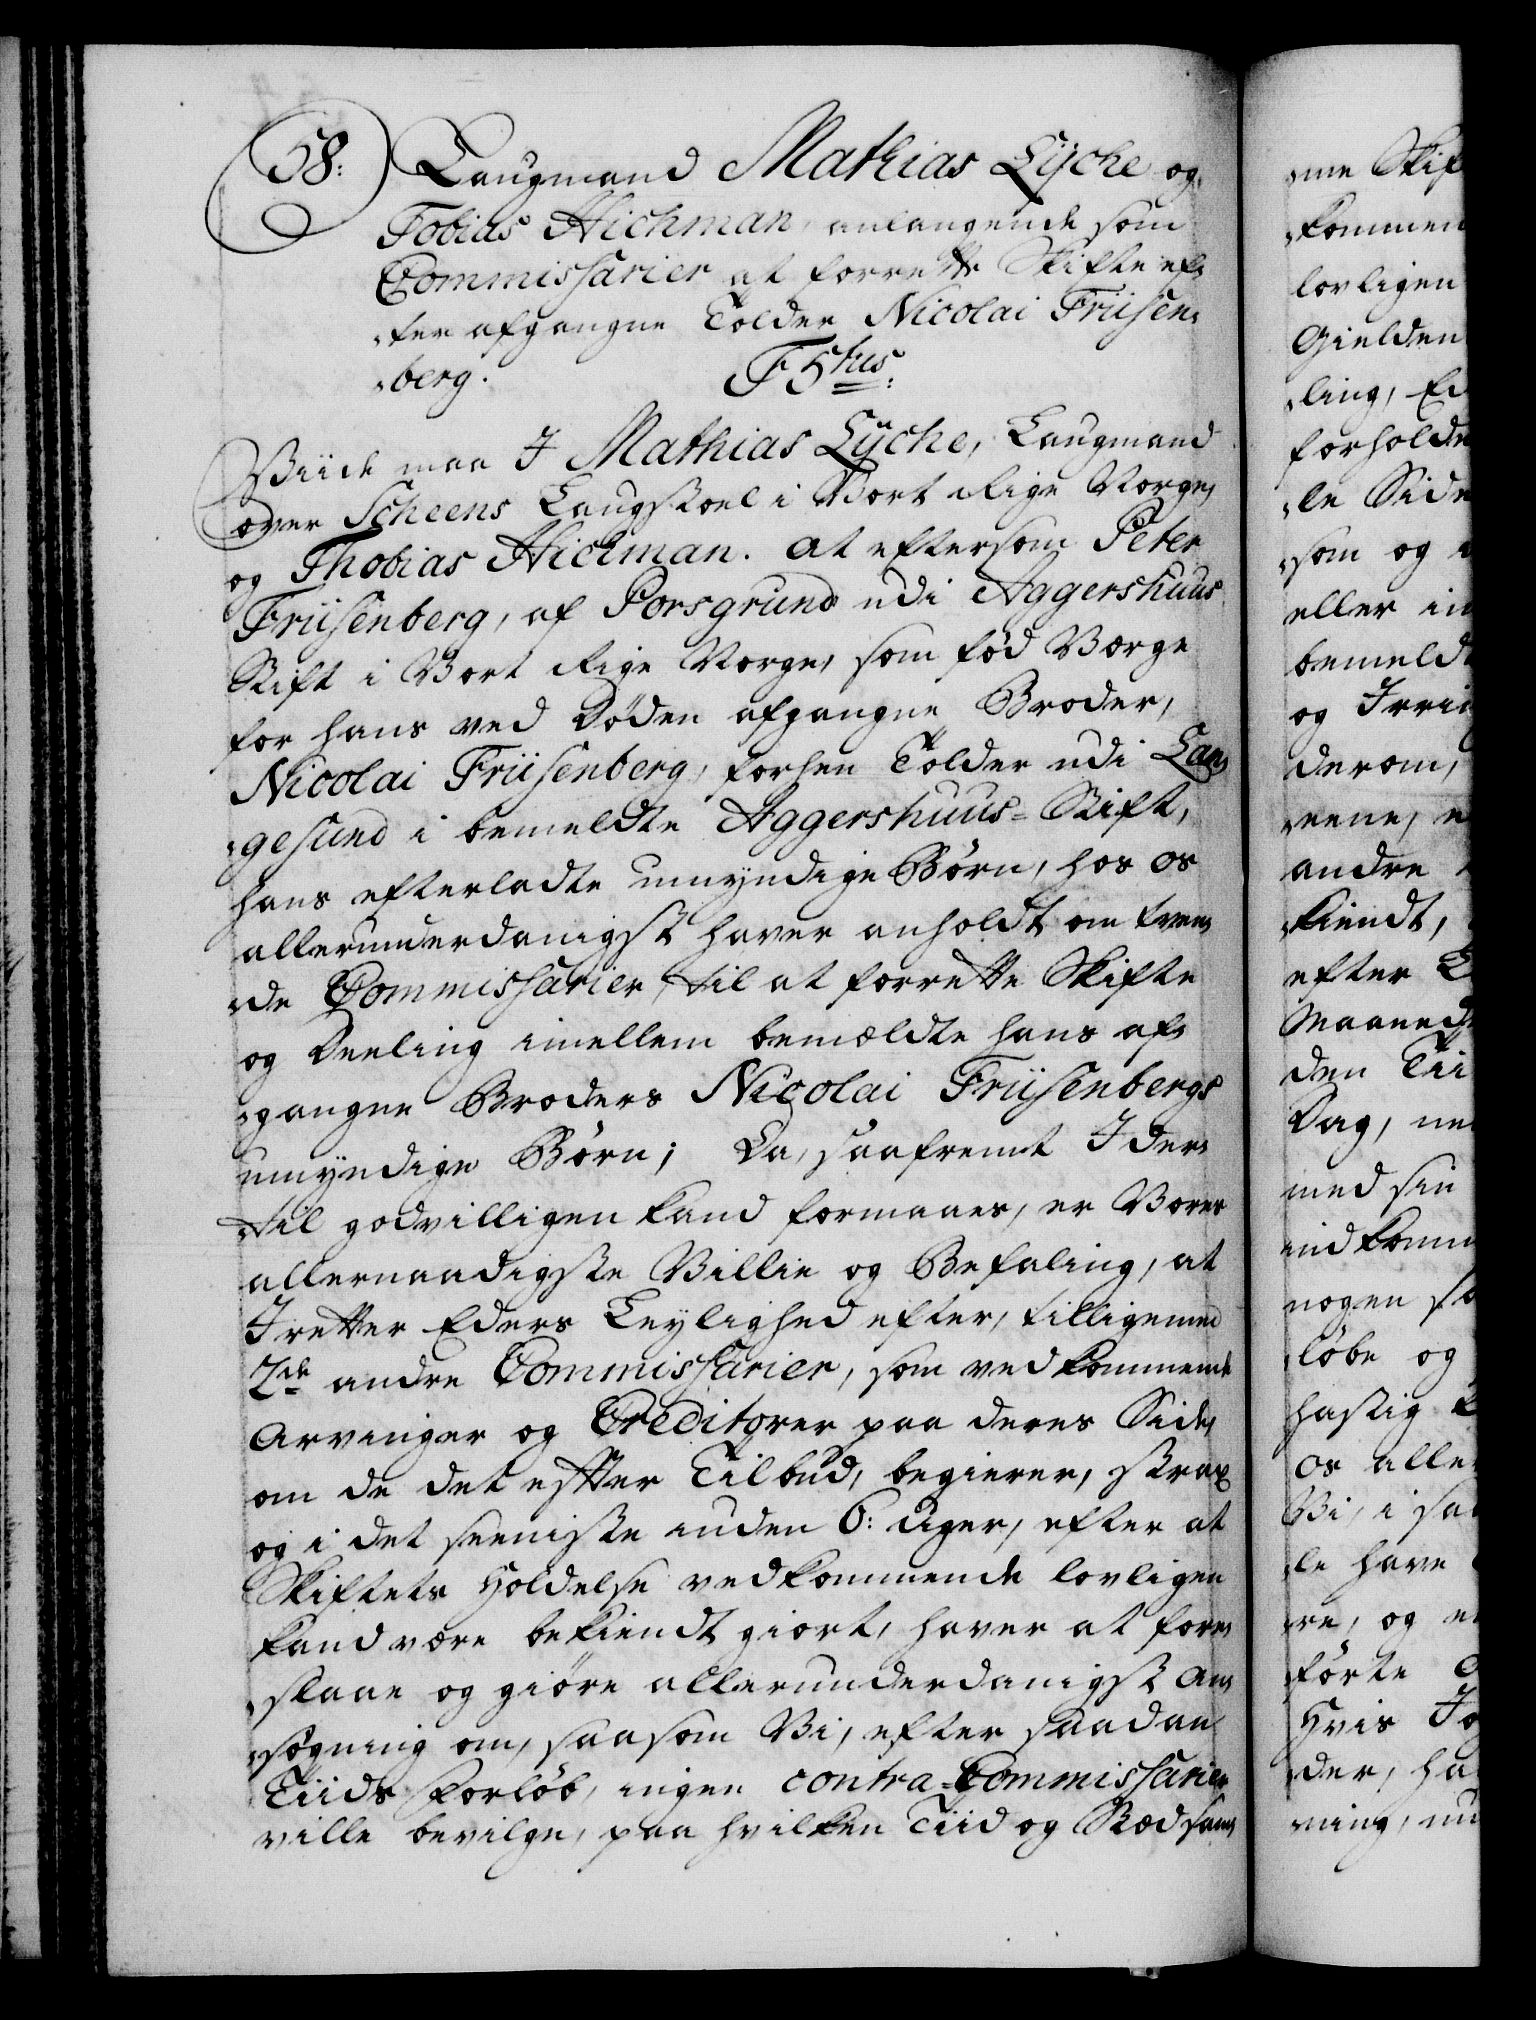 58: Laugmand Mathias Lÿche og
Tobias Hichman, anlangende som
Commissarier at forrette Skifte ef,
,ter afgangne Tolder Nicolai Friisen,
,berg. F5tus:
Viide maa I Mathias Lÿche, Laugmand
over Scheens Laugstoel i Vort Rige Norge,
og Thobias Hichman. At eftersom Peter
Friisenberg, af Porsgrund udi Aggershuus
Stift i Vort Rige Norge, som fød Værge
for hans ved Døden afgangne Broder,
Nicolai Friisenberg, forhen Tolder udi Lan,
,gesund i bemeldte Aggershuus-Stift,
hans efterladte umyndige Børn, hos os
allerunderdanigst haver anholdt om tven,
,de Commissarier, til at forrette Skifte
og Deeling imellem bemældte hans af,
,gangne Broders Nicolai Friisenbergs
umyndige Børn; Da, saafremt I der,
,til godvilligen kand formaaes, er Vores
allernaadigste Villie og Befaling, at
I retter Eders Leylighed efter, tilligemed
2de andre Commissarier, som vedkommende
Arvinger og Creditorer paa deres Side,
om de det efter Tilbud, begierer, strax
og i det seeniste inden 6: Uger, efter at
Skiftets Holdelse vedkommende lovligen
kand være bekiendt giort, haver at fore,
,slaae og giøre allerunderdanigst An,
,søgning om, saasom Vi, efter saadan
Tiids Forløb, ingen contra-Commissarier
ville bevilge, paa hvilken Tiid og Stæd sam,
,me Skif
,kommen
lovligen
Gielden
,ling, Ed
forholde
,le Side
,som og
eller in
bemeldt
og Irri
derom,
,eene, e
andre
,kiendt,
efter
Maaned
den Tii
Dag, ne
med sin
indkomm
nogen
,løbe og
hastig
os alle
Vi, i saa
,le have
,re, og
,førte
Hvis Jo
,der, ha
,ning, nu